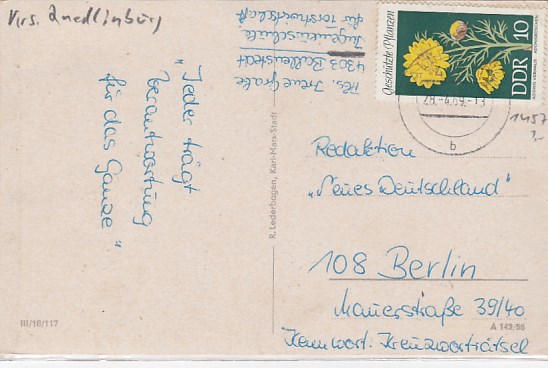 Krs. Quedlinburg
Abs. Irene Grabe
4303 Ballenstedt
Ingenieurschule
für Forstwirtschaft
"Jeder trägt
Verantwortung
für das Ganze"
III/18/117
R. Lederbogen, Karl-Marx-Stadt
Geschützte Pflanzen
DDR 10
ADONIS VERNALIS · ADONISRÖSCHEN
b
1457
Redaktion
"Neues Deutschland"
108 Berlin
Mauerstraße 39/40
Kennwort. Kreuzworträtsel